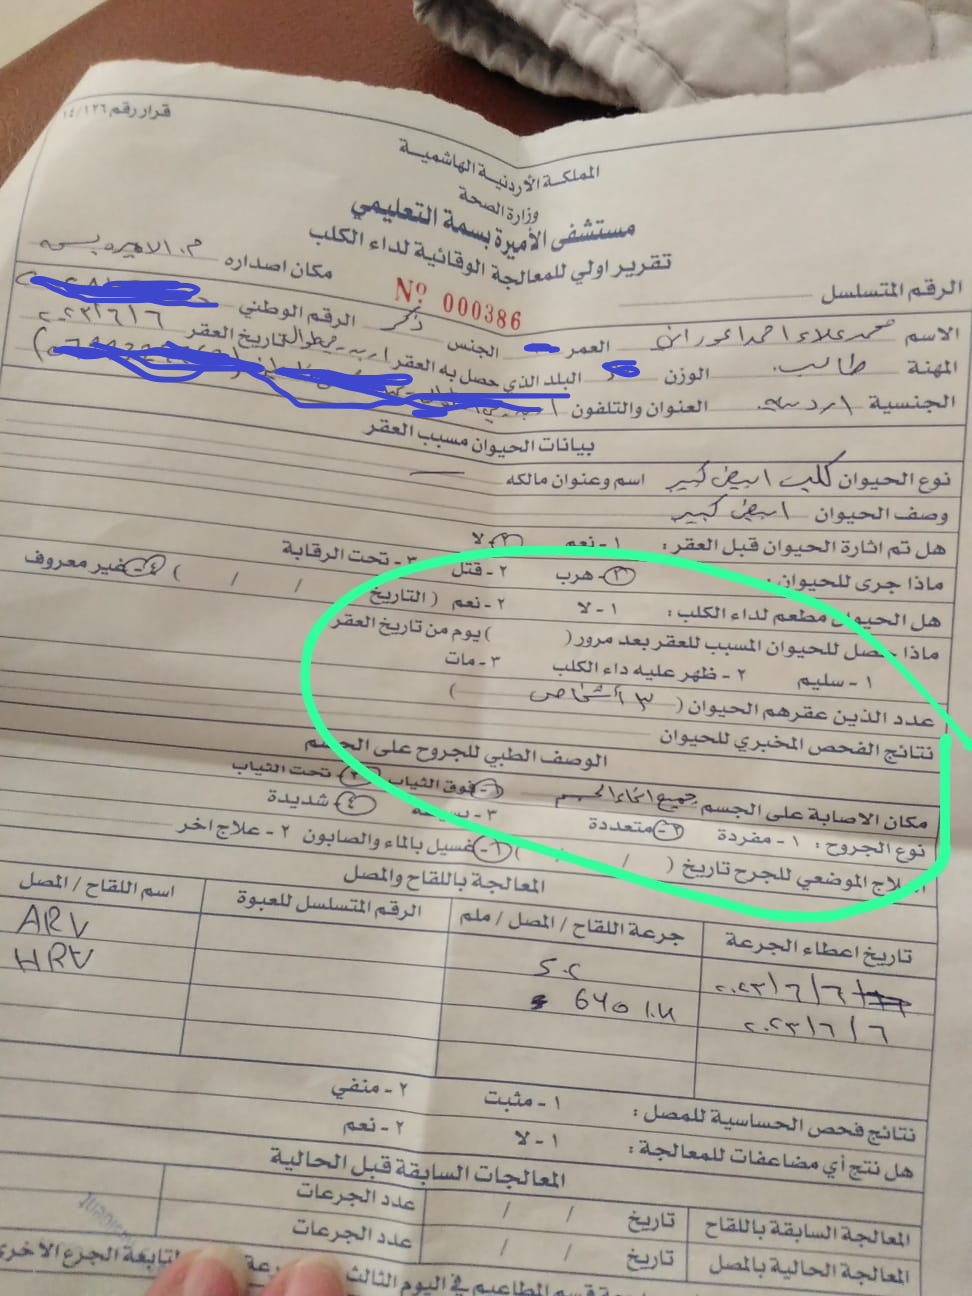 قرار رقم ١٤/١٢٦
المملكة الأردنية الهاشمية
وزارة الصحة
مستشفى الأميرة بسمة التعليمي
تقرير اولي للمعالجة الوقائية لداء الكلب
الرقم المتسلسل Nº 000386 مكان اصداره م. الاميره بسمه
الاسم محمد علاء احمد العمر الجنس ذكر الرقم الوطني
المهنة طالب الوزن البلد الذي حصل به العقر تاريخ العقر ٢٠٢٣/٦/٦
الجنسية العنوان والتلفون
بيانات الحيوان مسبب العقر
نوع الحيوان كلب ابيض كبير اسم وعنوان مالكه
وصف الحيوان ابيض كبير
هل تم اثارة الحيوان قبل العقر : ١ - نعم ٢ - لا
ماذا جرى للحيوان : ١ - هرب ٢ - قتل ٣ - تحت الرقابة
هل الحيوان مطعم لداء الكلب : ١ - لا ٢ - نعم ( التاريخ / / ) ٤ - غير معروف
ماذا حصل للحيوان المسبب للعقر بعد مرور ( ) يوم من تاريخ العقر
١ - سليم ٢ - ظهر عليه داء الكلب ٣ - مات
عدد الذين عقرهم الحيوان ( ٣ أشخاص )
نتائج الفحص المخبري للحيوان
الوصف الطبي للجروح على الجسم
مكان الاصابة على الجسم جميع انحاء الجسم ١ - فوق الثياب ٢ - تحت الثياب
نوع الجروح : ١ - مفردة ٢ - متعددة ٣ - بسيطة ٤ - شديدة
العلاج الموضعي للجرح تاريخ ( / / ) ١ - غسيل بالماء والصابون ٢ - علاج اخر
المعالجة باللقاح والمصل
تاريخ اعطاء الجرعة جرعة اللقاح / المصل / ملم الرقم المتسلسل للعبوة اسم اللقاح / المصل
٢٠٢٣/٦/٦ ARV
٢٠٢٣/٦/٦ HRV
نتائج فحص الحساسية للمصل : ١ - مثبت ٢ - منفي
هل نتج أي مضاعفات للمعالجة : ١ - لا ٢ - نعم
المعالجات السابقة قبل الحالية
المعالجة السابقة باللقاح تاريخ / / عدد الجرعات
المعالجة الحالية بالمصل تاريخ / / عدد الجرعات
قسم المطاعيم في اليوم الثالث لتابعة الجرع الاخرى